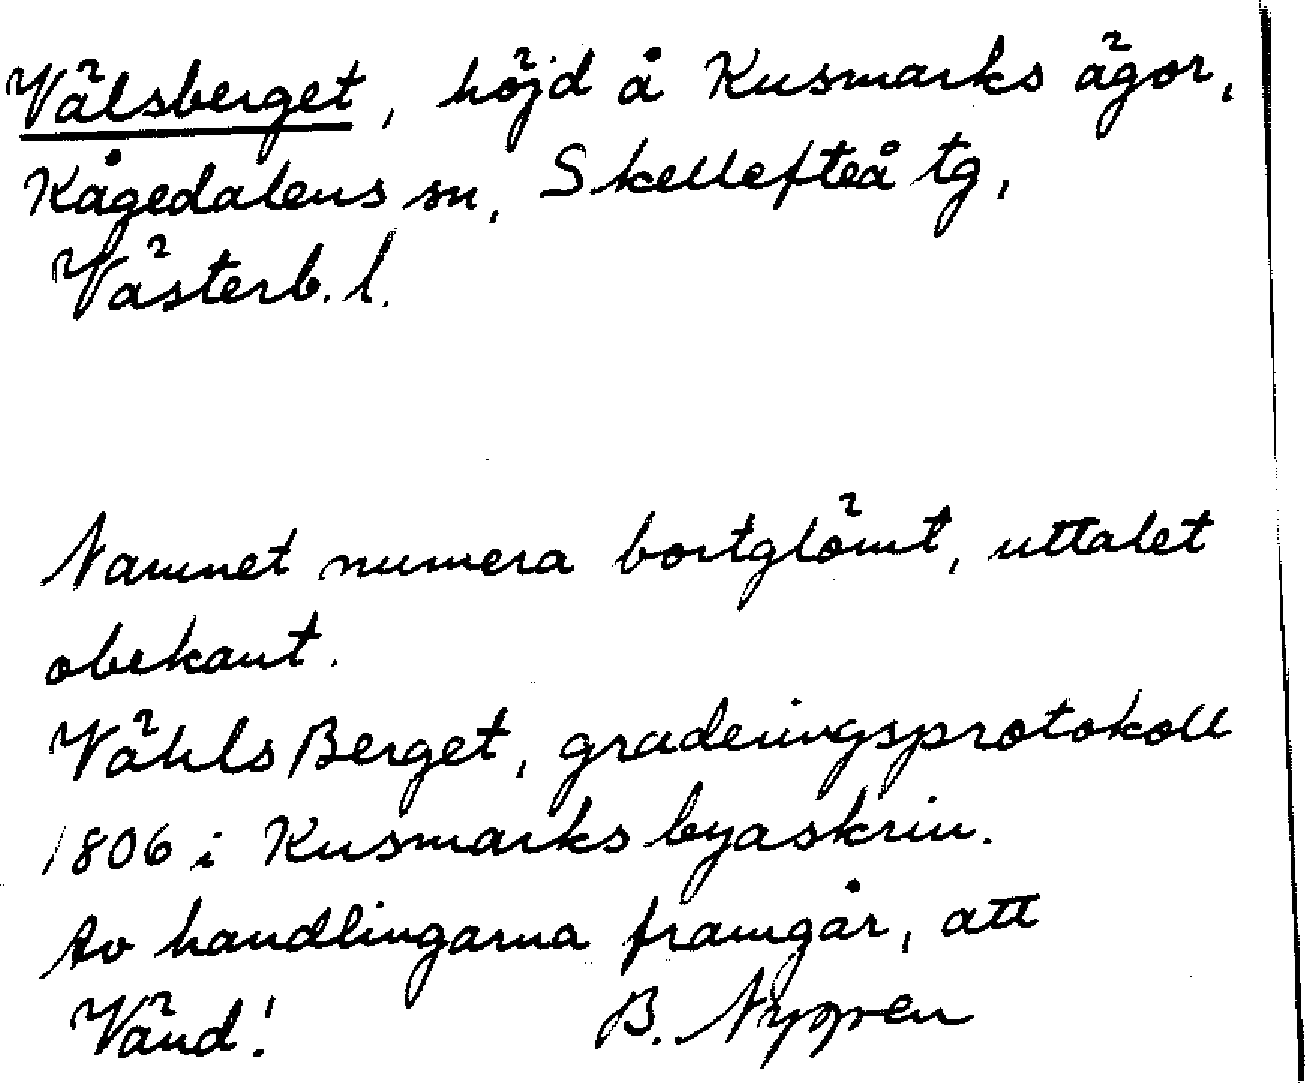 Välsberget, höjd å Kusmarks ägor,
Kågedalens sn, Skellefteå tg,
Västerb. l.
Namnet numera bortglömt, uttalet
obekant.
Vähls Berget, graderingsprotokoll
1806 i Kusmarks byaskrin.
Av handlingarna framgår, att
Vänd! B. Nygren